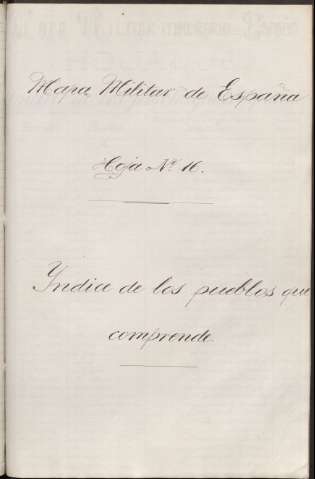 Mapa Militar de España
Hoja Nº 16.
Yndice de los pueblos que
comprende.